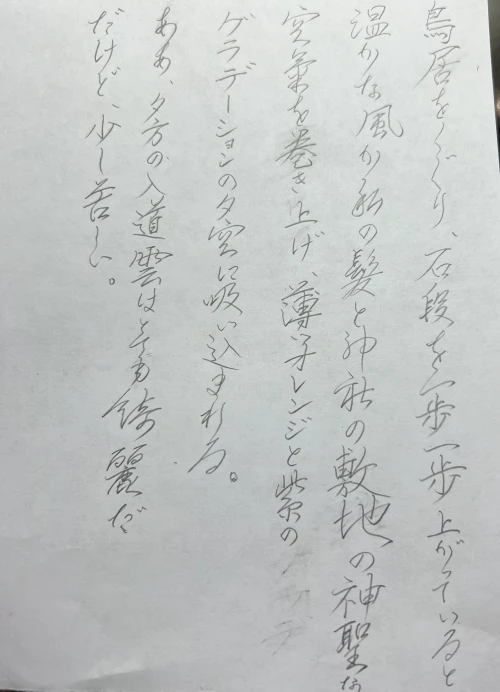 鳥居をくぐり、石段を一歩一歩上がっていると
温かな風が私の髪と神社の敷地の神聖な
空気を巻き上げ、薄いオレンジと紫の
グラデーションの夕空に吸い込まれる。
ああ、夕方の入道雲はとても綺麗だ
だけど、少し苦しい。